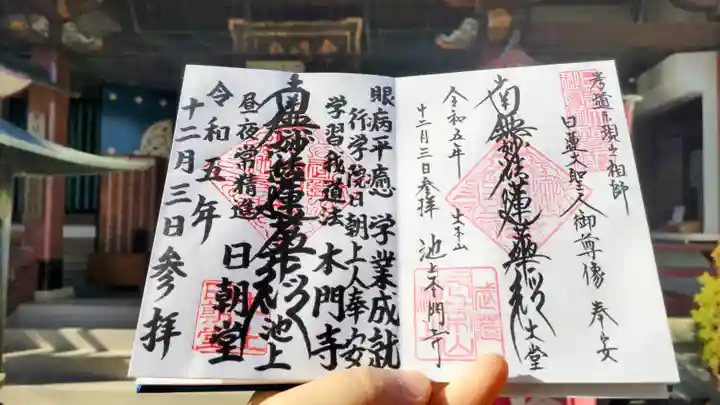 日蓮大聖人御尊像 奉安
南無妙法蓮華経
大堂
令和五年
十二月三日参拝
池上本門寺
眼病平癒 学業成就
行学院日朝上人奉安
学習我道法 本門寺
南無妙法蓮華経 池上
昼夜常精進 日朝堂
令和五年
十二月三日参拝